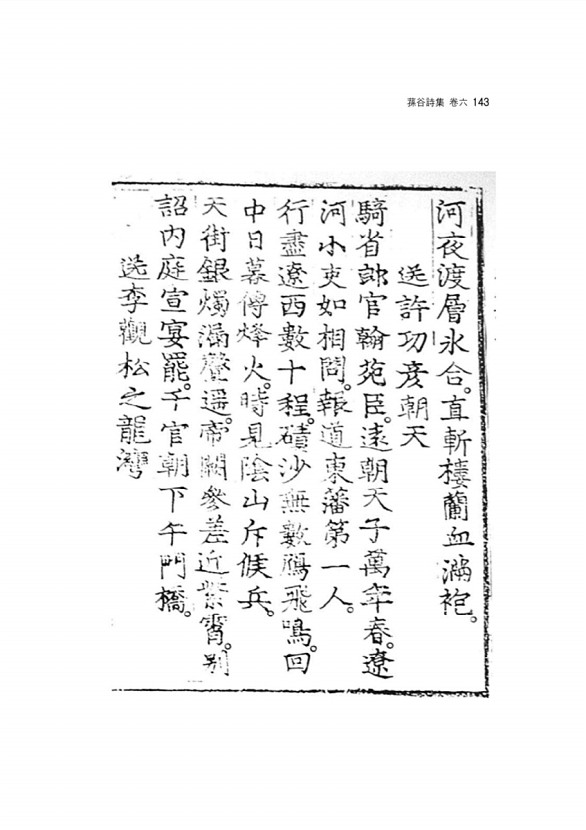 蓀谷詩集 卷六 143
河夜渡層氷合。直斬樓蘭血滿袍。
送許功彥朝天
騎省郎官翰苑臣。遠朝天子萬年春。遼
河小吏如相問。報道東藩第一人。
行盡遼西數十程。磧沙無數鴈飛鳴。回
中日暮傳烽火。時見陰山斥候兵。
天街銀燭漏聲遥。帝闕參差近紫霄。別
詔內庭宣宴罷。千官朝下午門橋。
送李觀松之龍灣